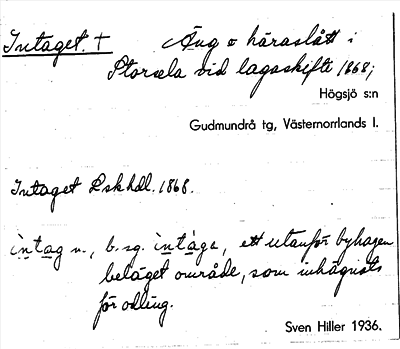 Intaget. †
Äng o håraslått i
Storsela vid lagaskifte 1868;
Högsjö s:n
Gudmundrå tg, Västernorrlands l.
Intaget Lskhdl. 1868.
intag n., b. sg. intága, ett utanför byhagen
beläget område, som inhägnats
för odling.
Sven Hiller 1936.